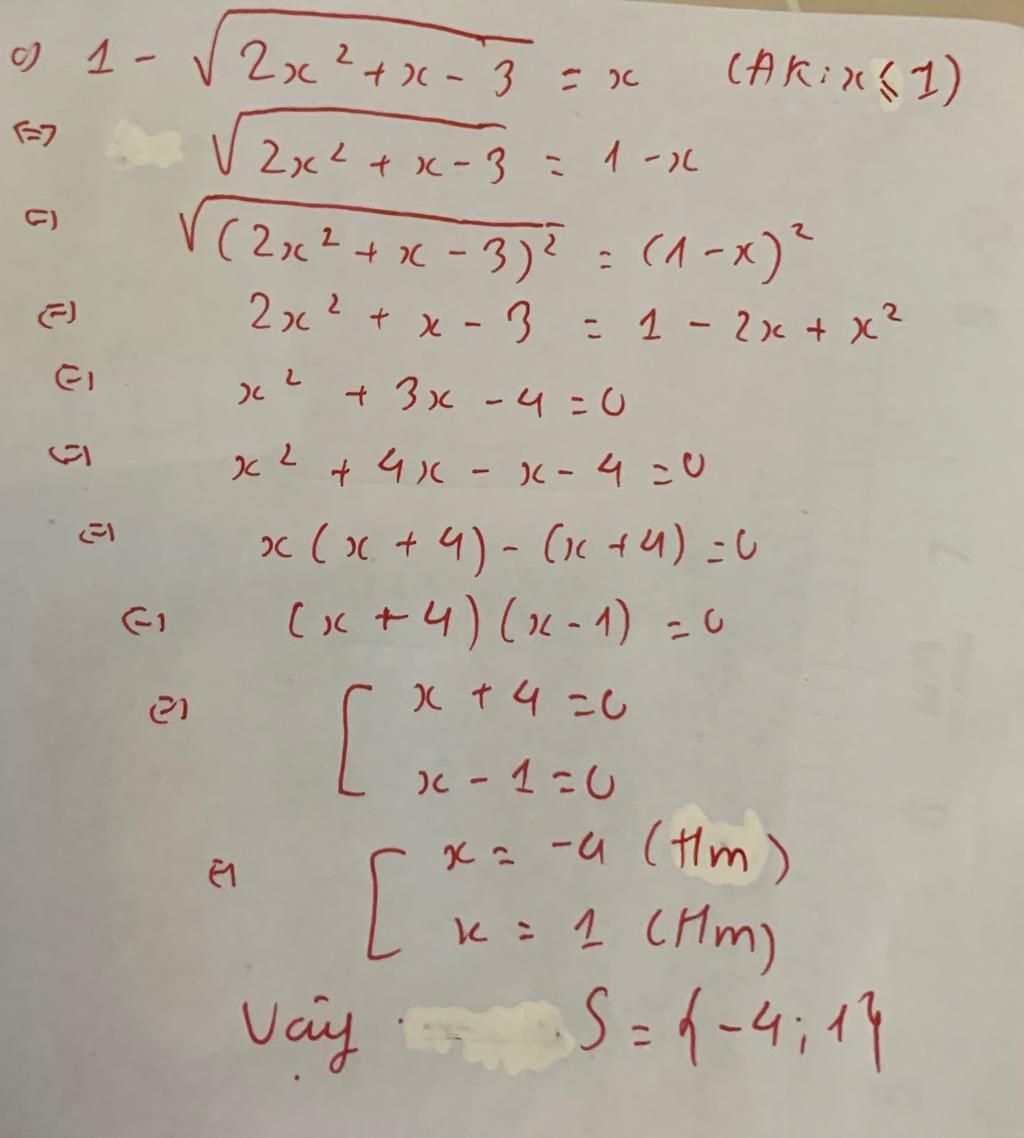 c) 1 - √(2x² + x - 3) = x (ĐK: x ≤ 1)
⇔ √(2x² + x - 3) = 1 - x
⇔ √((2x² + x - 3)²) = (1 - x)²
⇔ 2x² + x - 3 = 1 - 2x + x²
⇔ x² + 3x - 4 = 0
⇔ x² + 4x - x - 4 = 0
⇔ x(x + 4) - (x + 4) = 0
⇔ (x + 4)(x - 1) = 0
⇔ [ x + 4 = 0
x - 1 = 0
⇔ [ x = -4 (Hm)
x = 1 (Hm)
Vậy S = {-4; 1}